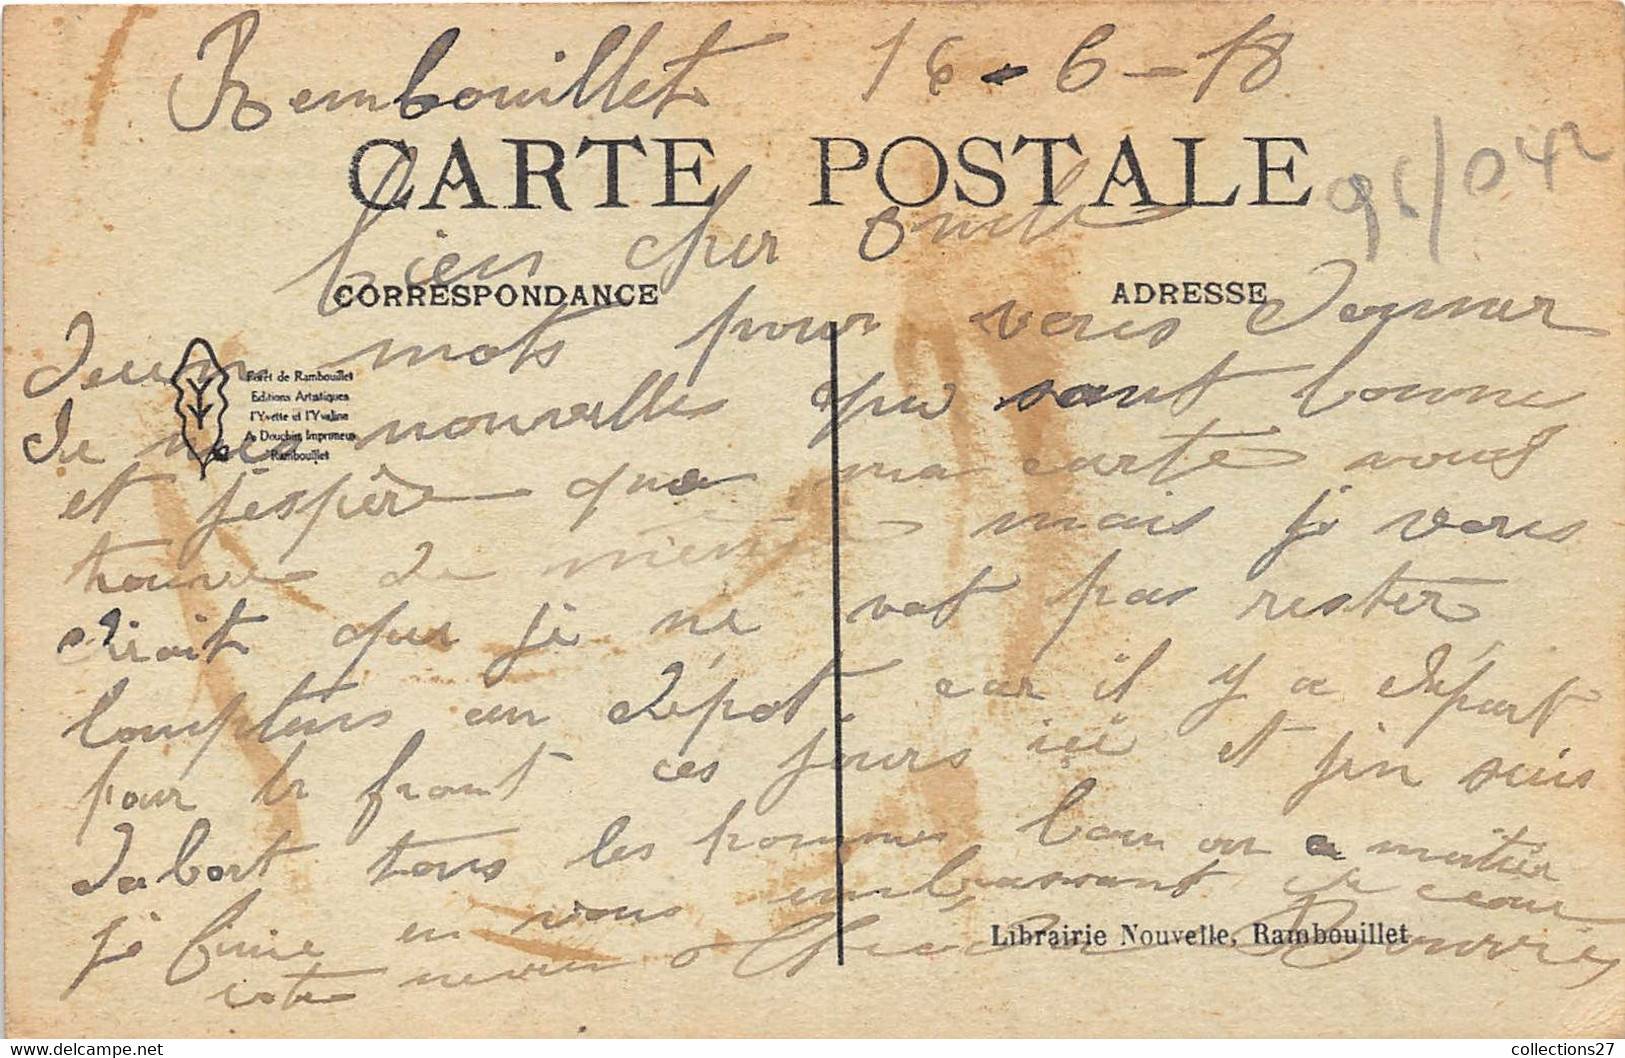 Rembouillet 16-6-18
CARTE POSTALE
96/042
bien cher oncle
CORRESPONDANCE
ADRESSE
Forêt de Rambouillet
Editions Artistiques
l'Yvette et l'Yveline
A. Douchin Imprimeur
Rambouillet
deux mots pour vous donner
de mes nouvelles qui sont bonne
et j'espère que ma carte vous
trouve de même mais je vous
diroit que je ne vat pas rester
lompters au dépot car il y a départ
pour le front ces jours icii et j'en suis
dabort tous les hommes bon on a
je finie en vous embrassant de cour
vote neveu Bouvrie
Librairie Nouvelle, Rambouillet
collections27